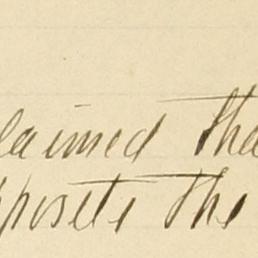 laimed tha
pposite the